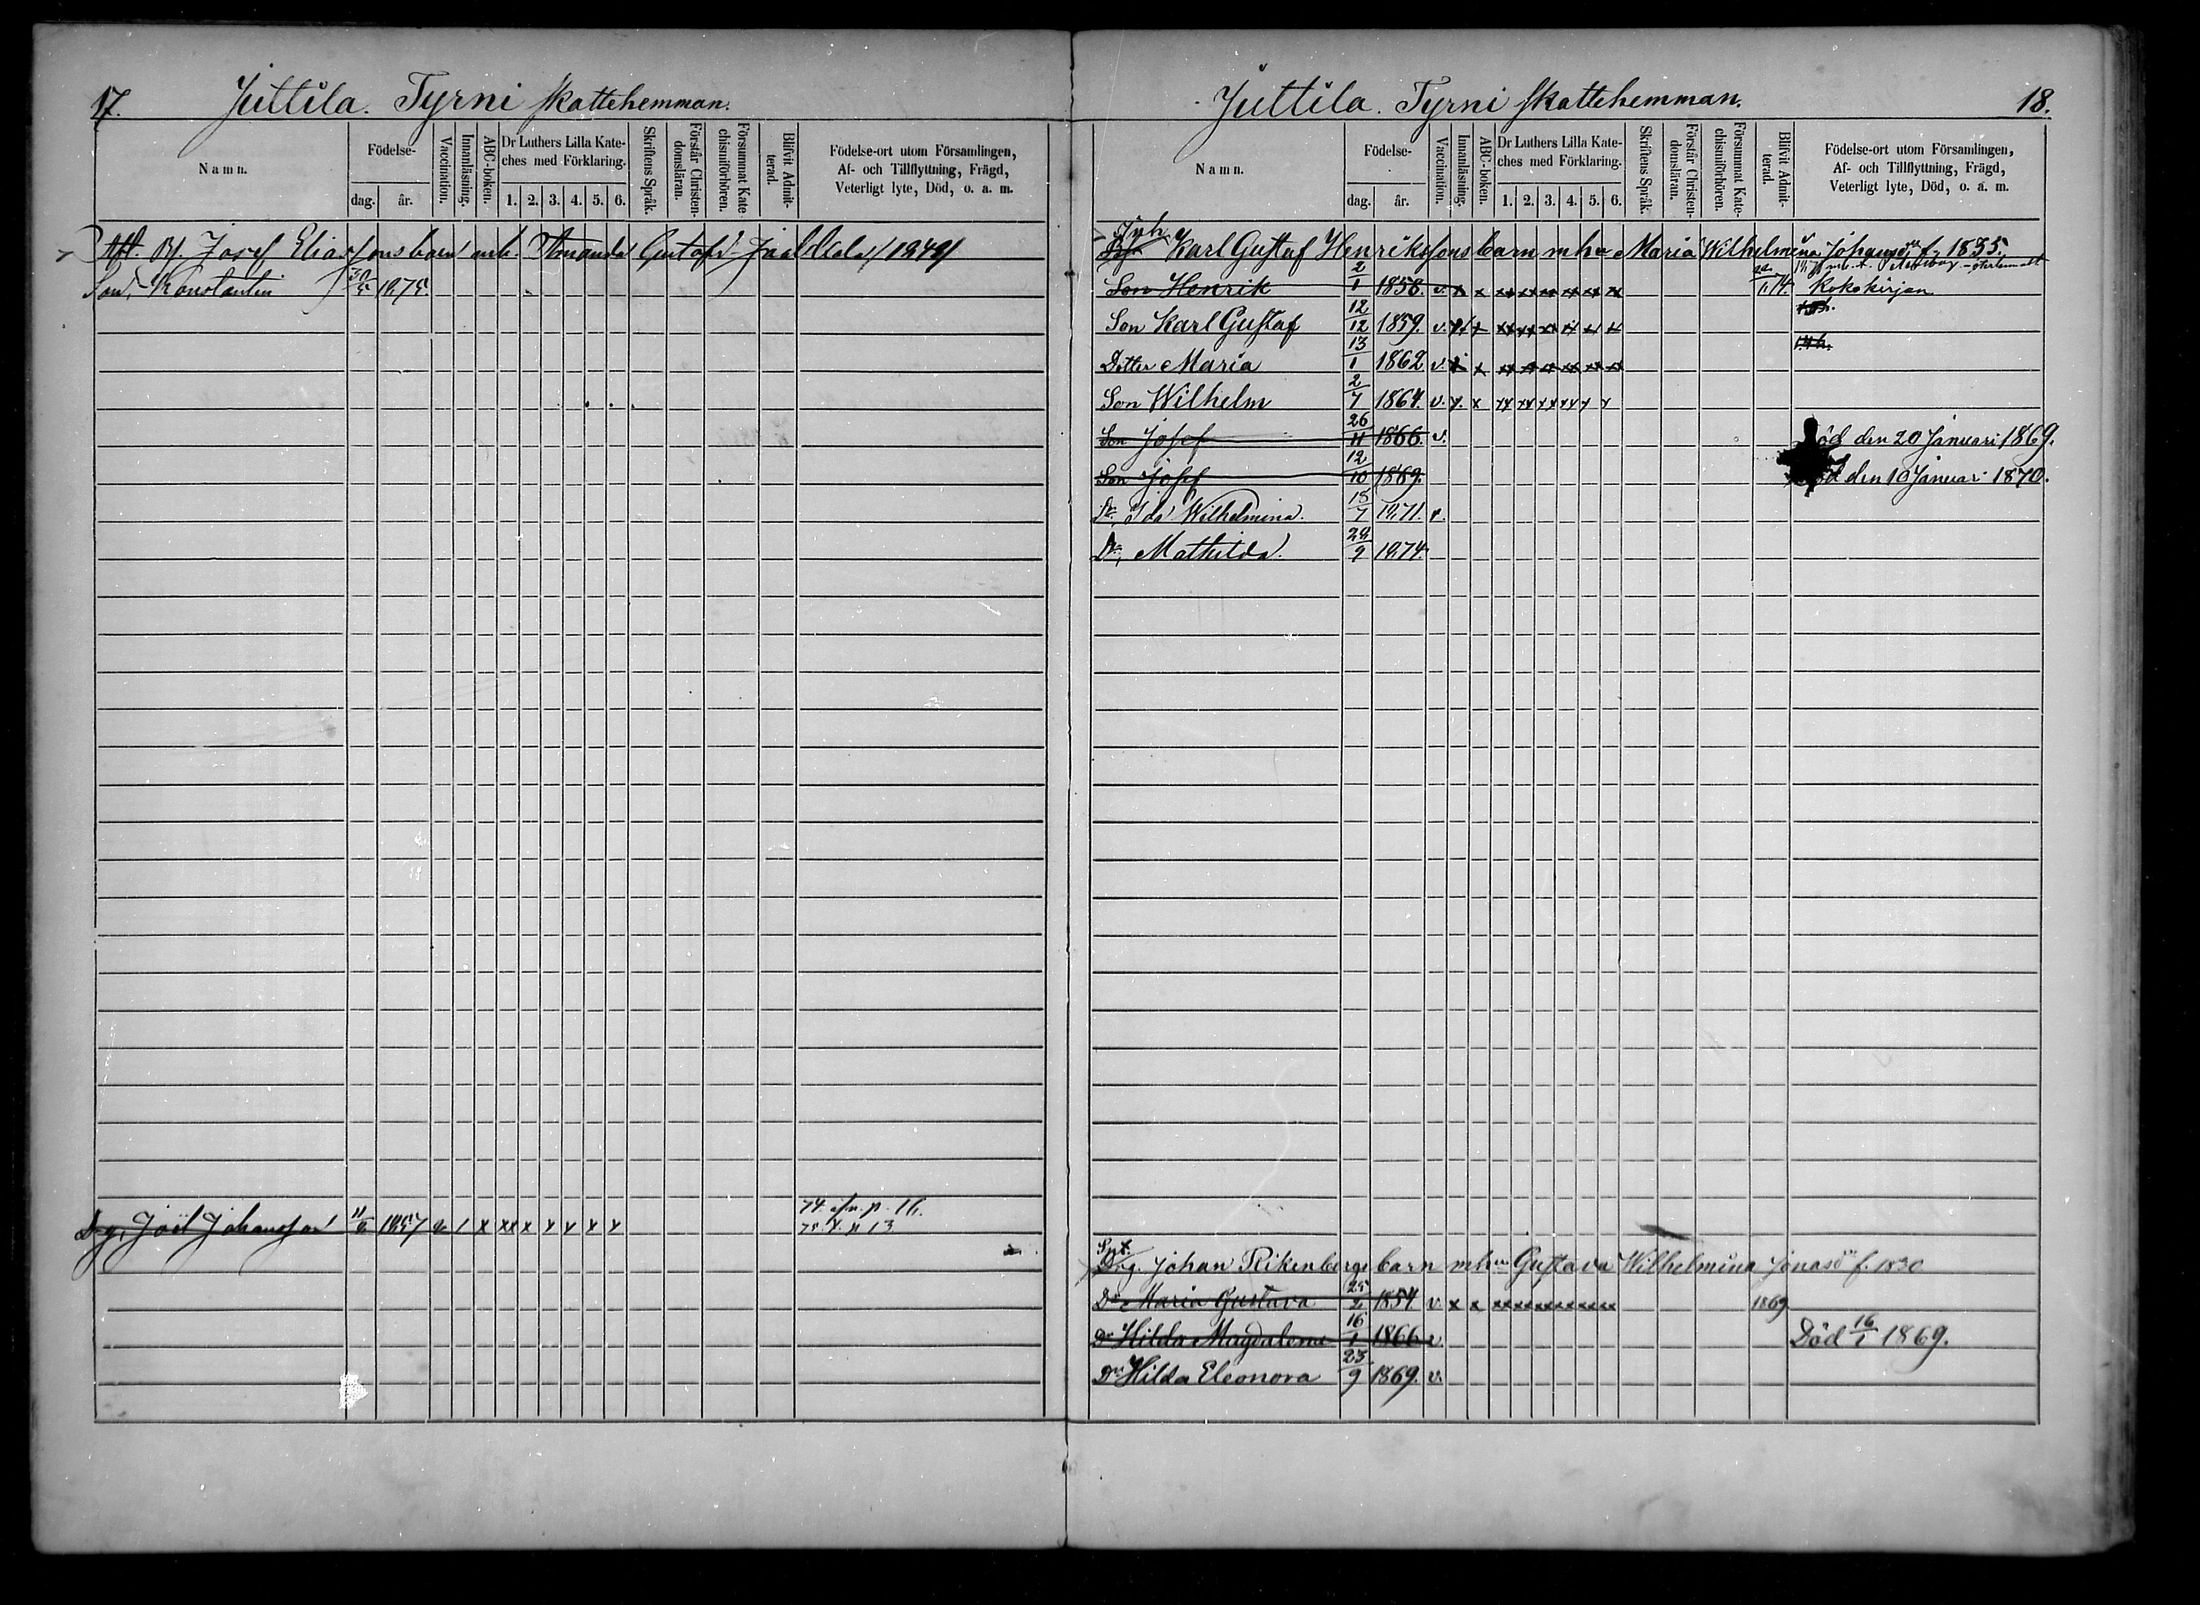 17.
Juttila. Tyrni skattehemman.
Namn.
Födelse-
dag.
år.
Vaccination.
Innanläsning.
ABC-boken.
Dr Luthers Lilla Kate-
ches med Förklaring.
1. 2. 3. 4. 5. 6.
Skriftens Språk.
Förstår Christen-
domsläran.
Försummat Kate-
chismiförhören.
Blifvit Admit-
terad.
Födelse-ort utom Församlingen,
Af- och Tillflyttning, Frägd,
Veterligt lyte, Död, o. a. m.
Josef Eliassons barn mh. Amanda Gustafsd.
Son, Konstantin 30/5 1875.
74 p. 16.
Drg. Joel Johansson 11/6 1857 v / x xx x x x x x p 13
Juttila. Tyrni skattehemman.
18.
Namn.
Födelse-
dag.
år.
Vaccination.
Innanläsning.
ABC-boken.
Dr Luthers Lilla Kate-
ches med Förklaring.
1. 2. 3. 4. 5. 6.
Skriftens Språk.
Förstår Christen-
domsläran.
Försummat Kate-
chismiförhören.
Blifvit Admit-
terad.
Födelse-ort utom Församlingen,
Af- och Tillflyttning, Frägd,
Veterligt lyte, Död, o. a. m.
Karl Gustaf Henrikssons barn mhu Maria Wilhelmina Johansdr f. 1835.
Son Henrik 2/1 1858. v. x x xx xx xx xx xx xx
Son Karl Gustaf 12/12 1859. v.
Dotter Maria 13/1 1862 v.
Son Wilhelm 2/7 1864. v.
Son Josef 26/11 1866. v. Död den 20 Januari 1869.
Son Josef 12/10 1869. Död den 10 Januari 1870.
Dr, Ida Wilhelmina. 15/7 1871. v.
Dr, Mathilda. 28/9 1874.
Spt.
Drg. Johan Rikenbergs barn mhu Gustava Wilhelmina Jonasdr f. 1830
Dr Maria Gustava 25/2 1854. v x x xx xx xx xx xx xx 1869
Dr Hilda Magdalena 16/1 1866 v Död 16/1 1869.
Dr Hilda Eleonora 23/9 1869. v.